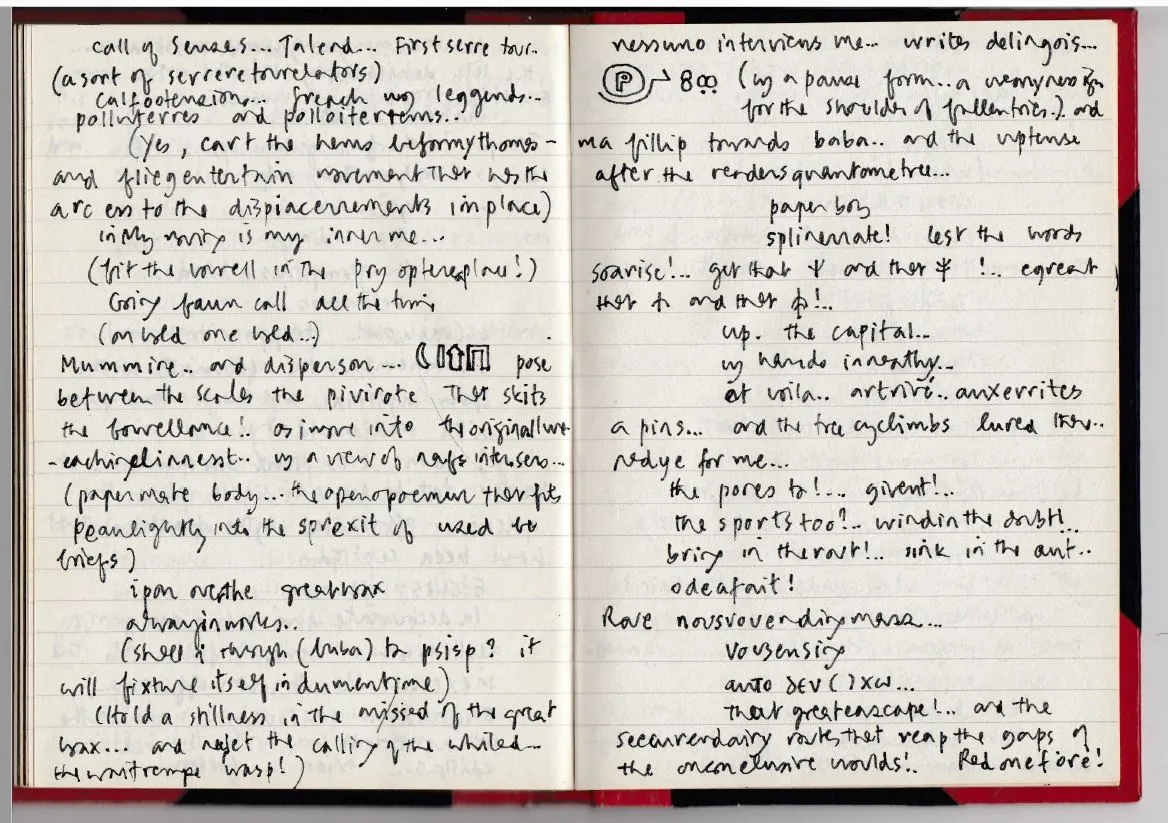 call of Senses... Talend... First serre tour..
(a sort of serreretourelators)
calfootensions... french leggends...
polluferres and polloiterrems...
(Yes, can't the hems beformythomes -
and fliegentertain movement That has the
arc ess to the displacements in place)
in My is my innerme...
(fit the in The pry !)
Going faun call all the time
(on ueld one ueld...)
Mummire.. and disperson... pose
between the scales the pivirote That skits
the bowrellance!.. as imore into the original lure
.. in a view of intersens...
(papermate body... the openopoemen that fits
peanlightly into the sprexit of used be
briefs)
ipon over the greatwax
alwayinworks..
(shell i through (buba) to psisp? it
will fixture itself in dumentime)
(Hold a stillness in the missed of the great
wax... and the calling of the whiled...
the wasp!)
nessuno interviens me... writes delingois...
P 8∞ (in a pause form... a
for the shoulder of fallentries.) and
ma fillip towards baba.. and the uptense
after the rendersquantometree...
paper boy
splinemate! lest the words
soarise!.. get that Ψ and that !.. egreat
that and that !..
up. the capital...
in hands inneathy...
et voila.. artrivé.. auxerrites
a pins... and the tree cyclimbs lured them..
redye for me...
the pores to!... givent!...
the sports too?.. windin the doubt!..
bring in the rout!.. sink in the aut..
odeafait!
Rave ...
vousensing
auto δεν ( ) χω...
that greatenscape!... and the
secourerdairy routes that reap the gaps of
the onconclusive worlds!. Red one fore!